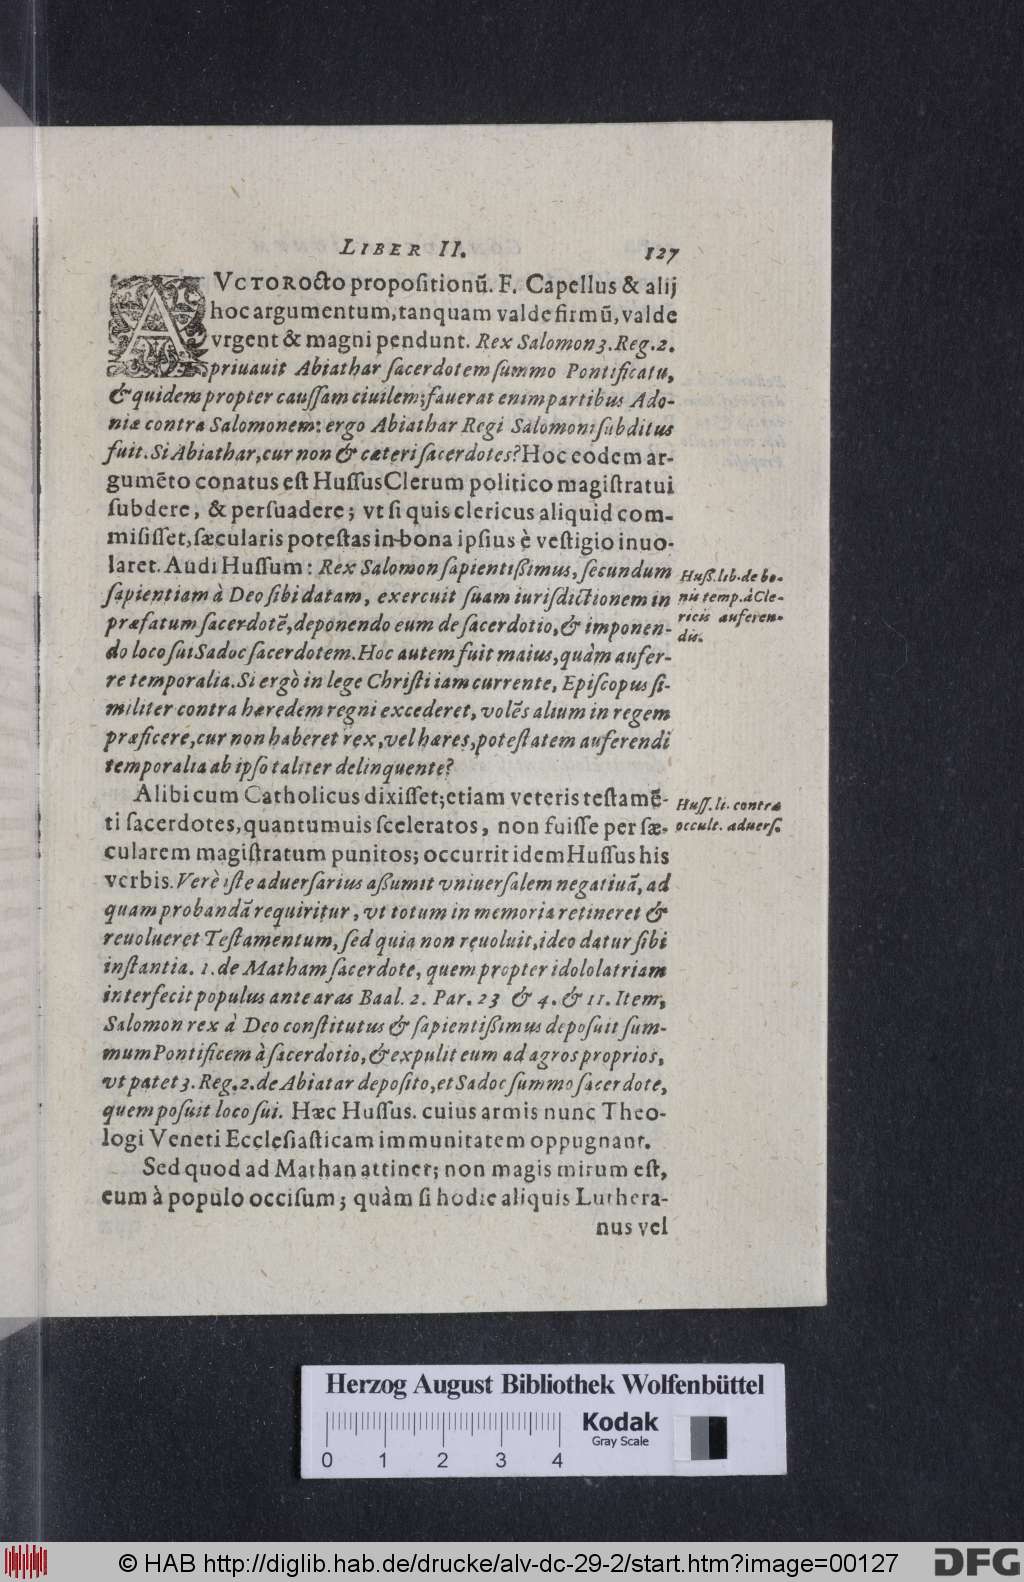 LIBER II. 127
AVCTOR octo propositionũ. F. Capellus & alij
hoc argumentum, tanquam valde firmũ, valde
vrgent & magni pendunt. Rex Salomon 3. Reg. 2.
priuauit Abiathar ſacerdotem ſummo Pontificatu,
& quidem propter cauſſam ciuilem; fauerat enim partibus Ado-
niæ contra Salomonem: ergo Abiathar Regi Salomoni ſubditus
fuit. Si Abiathar, cur non & cæteri ſacerdotes? Hoc eodem ar-
gumẽto conatus eſt Huſſus Clerum politico magiſtratui
ſubdere, & perſuadere; vt ſi quis clericus aliquid com-
miſiſſet, ſæcularis poteſtas in bona ipſius è veſtigio inuo-
laret. Audi Huſſum: Rex Salomon ſapientißimus, ſecundum
ſapientiam à Deo ſibi datam, exercuit ſuam iuriſdictionem in
præfatum ſacerdotẽ, deponendo eum de ſacerdotio, & imponen-
do loco ſui Sadoc ſacerdotem. Hoc autem fuit maius, quàm aufer-
re temporalia. Si ergò in lege Chriſti iam currente, Epiſcopus ſi-
militer contra hæredem regni excederet, volẽs alium in regem
præficere, cur non haberet rex, vel hæres, poteſtatem auferendi
temporalia ab ipſo taliter delinquente?
Huß. lib. de bo-
nis temp. à Cle-
ricis auferen-
dis.
Alibi cum Catholicus dixiſſet; etiam veteris teſtamẽ-
ti ſacerdotes, quantumuis ſceleratos, non fuiſſe per ſæ-
cularem magiſtratum punitos; occurrit idem Huſſus his
verbis. Verè iſte aduerſarius aßumit vniuerſalem negatiuã, ad
quam probandã requiritur, vt totum in memoria retineret &
reuolueret Teſtamentum, ſed quia non reuoluit, ideo datur ſibi
inſtantia. 1. de Matham ſacerdote, quem propter idololatriam
interfecit populus ante aras Baal. 2. Par. 23 & 4. & 11. Item,
Salomon rex à Deo conſtitutus & ſapientißimus depoſuit ſum-
mum Pontificem à ſacerdotio, & expulit eum ad agros proprios,
vt patet 3. Reg. 2. de Abiatar depoſito, et Sadoc ſummo ſacerdote,
quem poſuit loco ſui. Hæc Huſſus. cuius armis nunc Theo-
logi Veneti Eccleſiaſticam immunitatem oppugnant.
Huſſ. li. contra
occult. aduerſ.
Sed quod ad Mathan attinet; non magis mirum eſt,
eum à populo occiſum; quàm ſi hodie aliquis Luthera-
nus vel
Herzog August Bibliothek Wolfenbüttel
0 1 2 3 4
Kodak
Gray Scale
© HAB http://diglib.hab.de/drucke/alv-dc-29-2/start.htm?image=00127
DFG